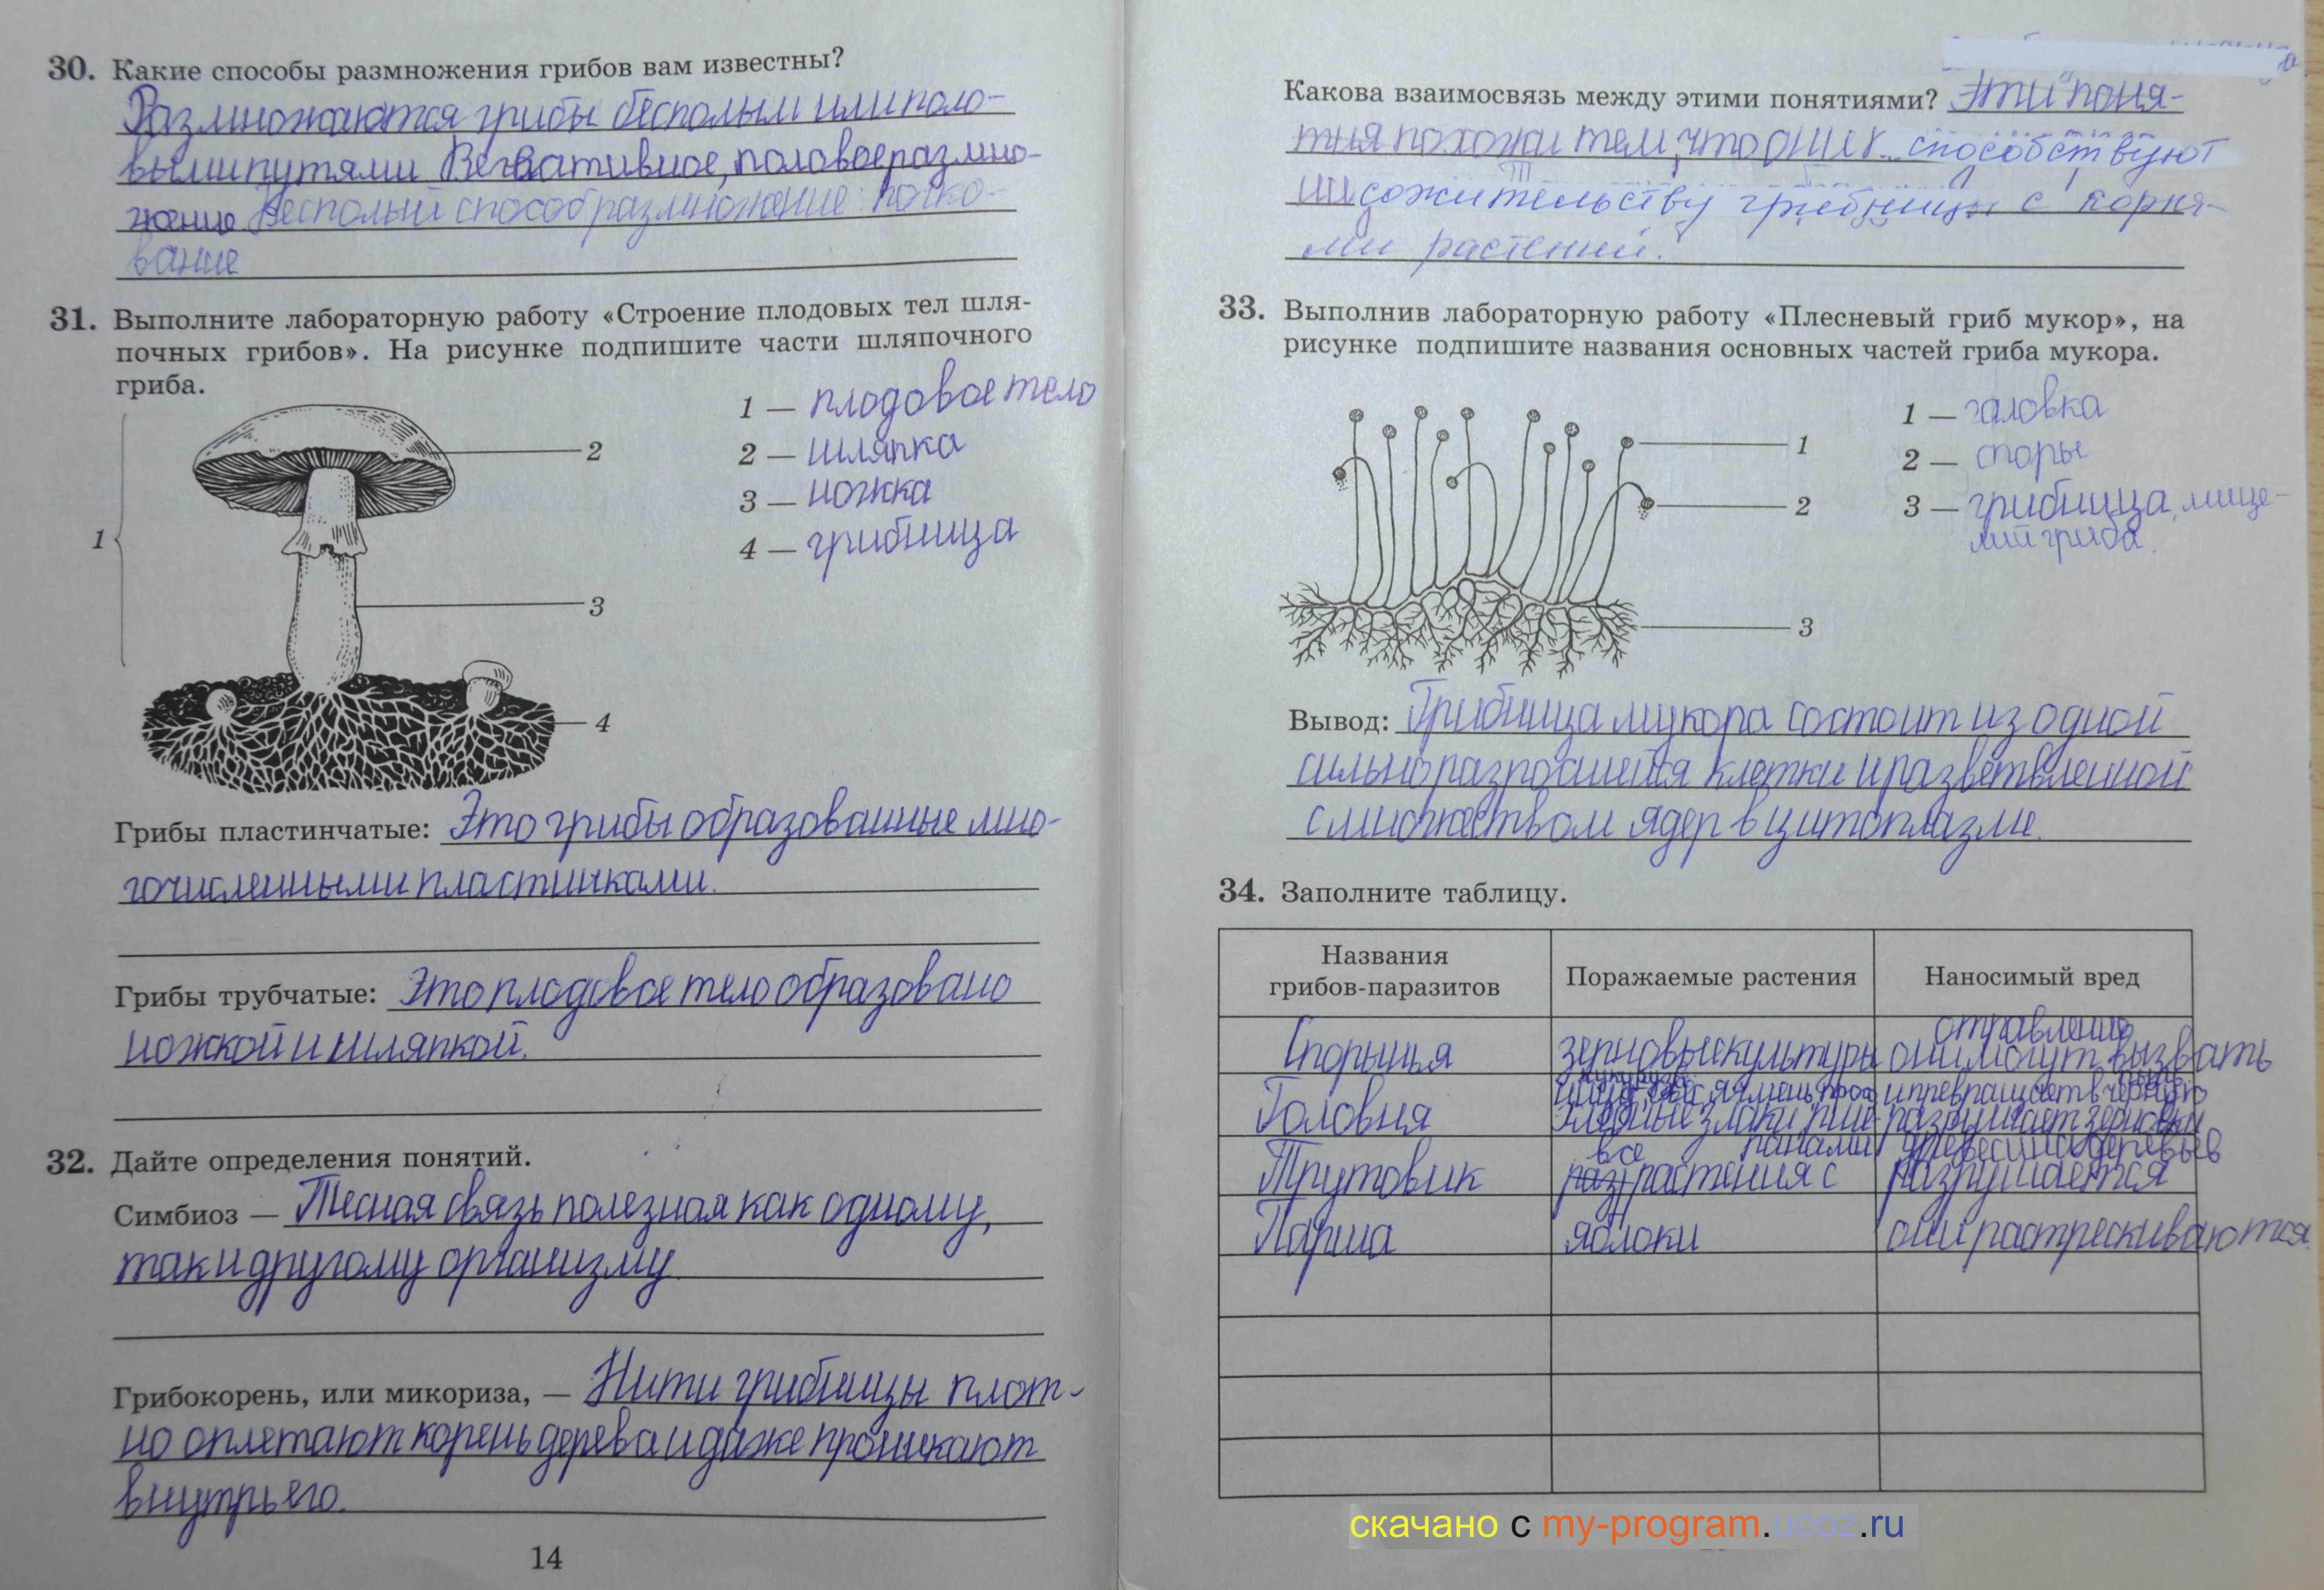 30. Какие способы размножения грибов вам известны?
Размножаются грибы бесполым или поло-
выми путями Вегетативное, половое размно-
жение Бесполый способ размножение: почко-
вание
31. Выполните лабораторную работу «Строение плодовых тел шля-
почных грибов». На рисунке подпишите части шляпочного
гриба.
1 — плодовое тело
2 — шляпка
3 — ножка
4 — грибница
1
2
3
4
Грибы пластинчатые: Это грибы образованные мно-
гочисленными пластинками.
Грибы трубчатые: Это плодовое тело образовано
ножкой и шляпкой.
32. Дайте определения понятий.
Симбиоз — Тесная связь полезная как одному,
так и другому организму.
Грибокорень, или микориза, — Нити грибницы плот-
но оплетают корень дерева и даже проникают
внутрь его.
14
Какова взаимосвязь между этими понятиями? Эти поня-
тия похожи тем, что они способствуют
сожительству грибницы с корня-
ми растений.
33. Выполнив лабораторную работу «Плесневый гриб мукор», на
рисунке подпишите названия основных частей гриба мукора.
1 — галовка
2 — споры
3 — грибница, мице-
лий гриба.
1
2
3
Вывод: Грибница мукора состоит из одной
сильно разросшейся клетки и разветвленной
с множеством ядер в цитоплазме.
34. Заполните таблицу.
Названия грибов-паразитов Поражаемые растения Наносимый вред
Спорынья зерновые культуры они могут вызвать отравление
Головня кукуруза, овёс, ячмень, просо хлебные злаки и превращает в чёрную пыль разрушает зерновки
Трутовик все растения с ранами древесина деревьев разрушается
Парша яблоки они растрескиваются
скачано с my-program.ucoz.ru